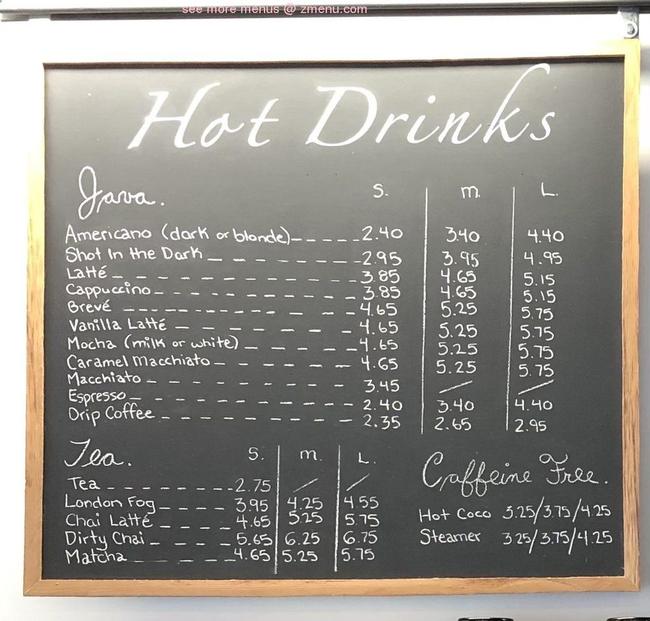 see more menus @ zmenu.com
Hot Drinks
Java. S. m. L.
Americano (dark or blonde) 2.40 3.40 4.40
Shot In the Dark 2.95 3.95 4.95
Latté 3.85 4.65 5.15
Cappuccino 3.85 4.65 5.15
Brevé 4.65 5.25 5.75
Vanilla Latté 4.65 5.25 5.75
Mocha (milk or white) 4.65 5.25 5.75
Caramel Macchiato 4.65 5.25 5.75
Macchiato 3.45 / /
Espresso 2.40 3.40 4.40
Drip Coffee 2.35 2.65 2.95
Tea. S. m. L.
Tea 2.75 / /
London Fog 3.95 4.25 4.55
Chai Latté 4.65 5.25 5.75
Dirty Chai 5.65 6.25 6.75
Matcha 4.65 5.25 5.75
Caffeine Free.
Hot Coco 3.25/3.75/4.25
Steamer 3.25/3.75/4.25